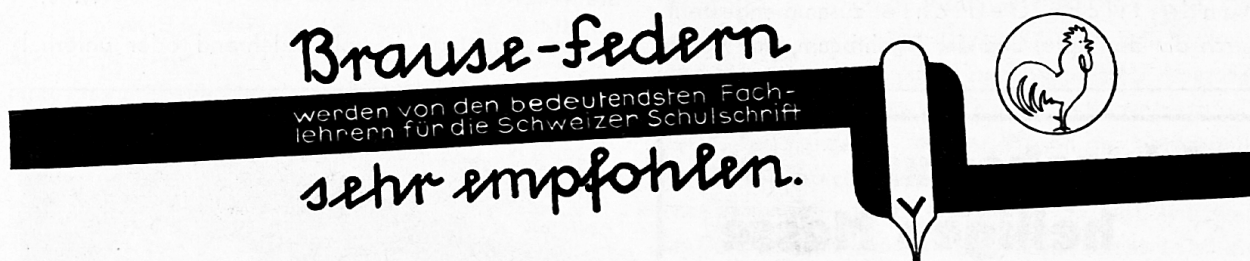 Brause-Federn
werden von den bedeutendsten Fach-
lehrern für die Schweizer Schulschrift
sehr empfohlen.